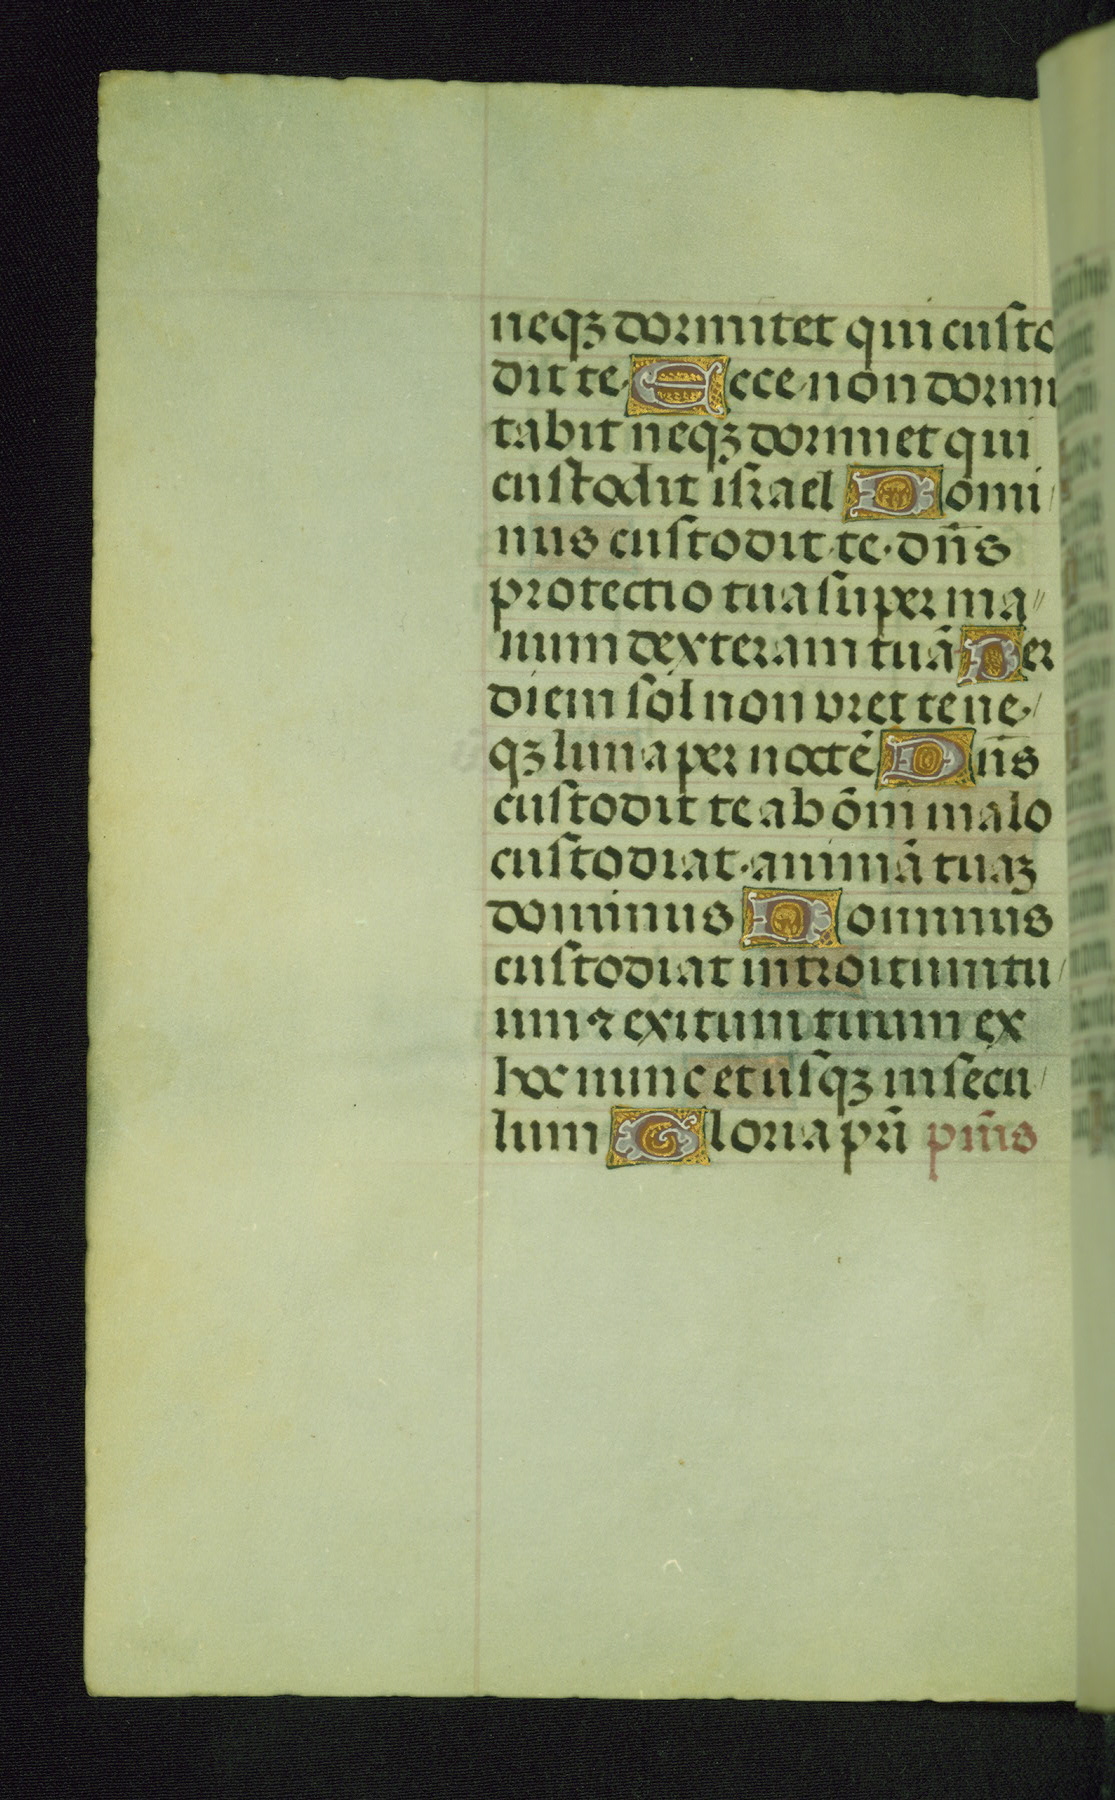 neqꝫ dormitet qui custo
dit te· Ecce non dormi
tabit neqꝫ dormiet qui
custodit israel Domi
nus custodit te· dn̄s
protectio tua super ma
num dexteram tuā Per
diem sol non vret te ne
qꝫ luna per noctē Dn̄s
custodit te ab ōmi malo
custodiat· animā tuaꝫ
dominus Dominus
custodiat introitum tu
um ⁊ exitum tuum ex
hoc nunc et usqꝫ in secu
lum Gloria pr̄i pm̄s